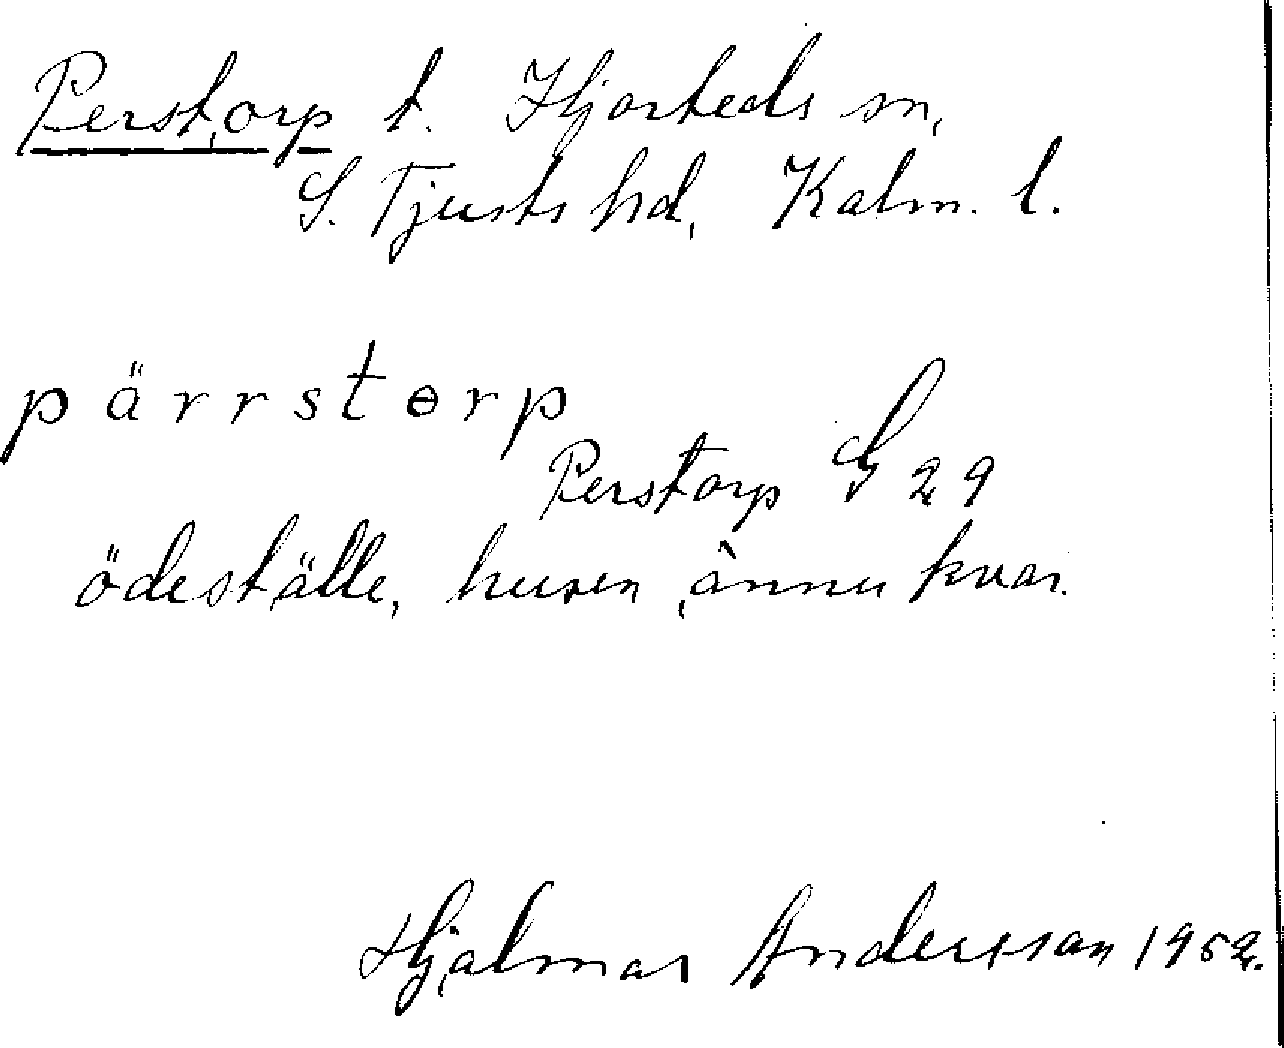 Perstorp t. Hjorteds sn,
S. Tjusts hd, Kalm. l.
pärrstɵrp
Perstorp G 29
ödeställe, husen ännu kvar.
Hjalmar Andersson 1952.